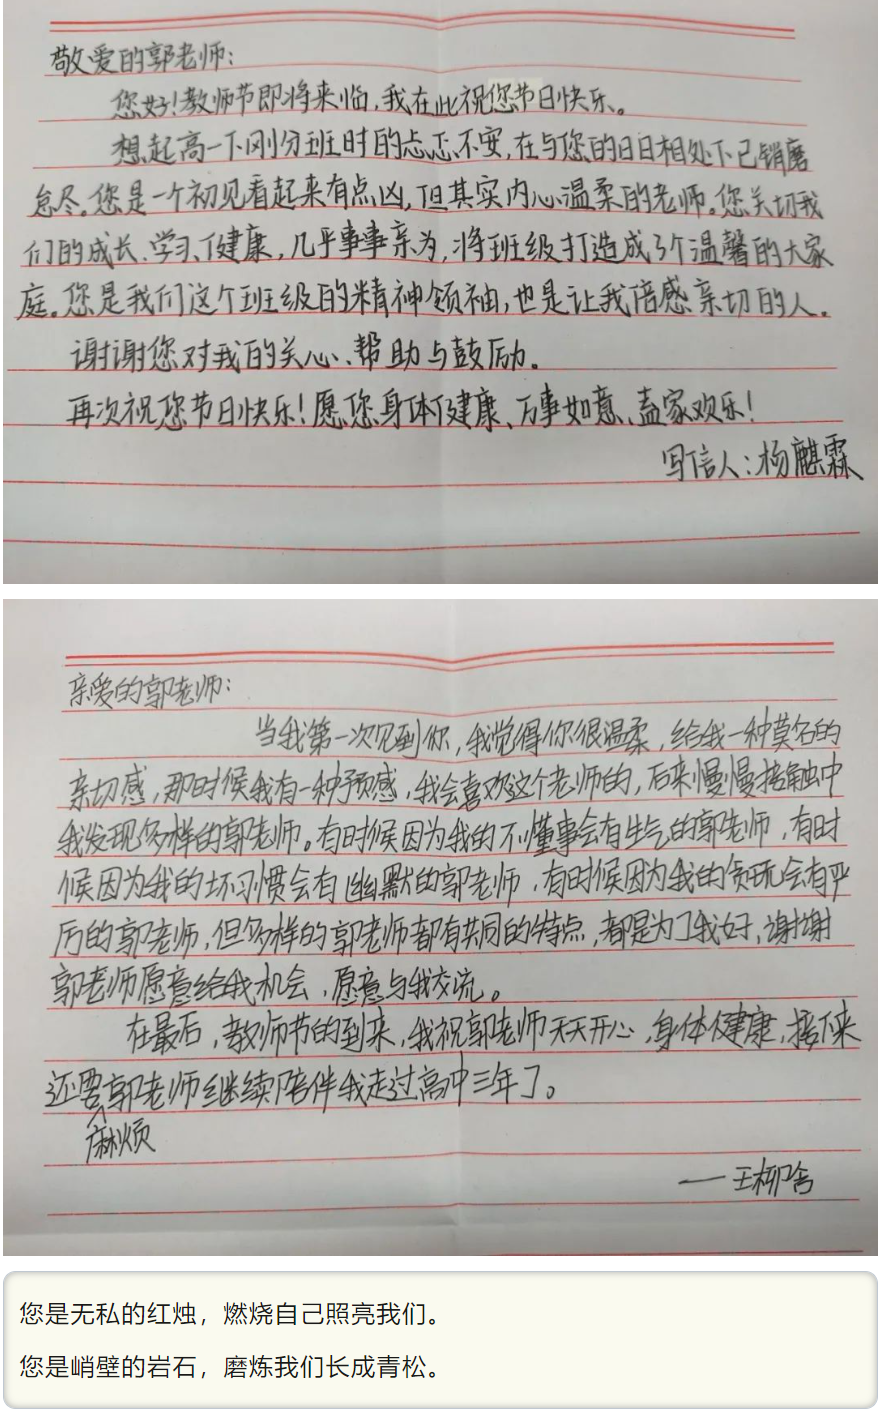 敬爱的郭老师:
您好!教师节即将来临,我在此祝您节日快乐。
想起高一下刚分班时的忐忑不安,在与您的日日相处下已销磨
怠尽。您是一个初见看起来有点凶,但其实内心温柔的老师。您关切我
们的成长、学习、健康,几乎事事亲为,将班级打造成了个温馨的大家
庭。您是我们这个班级的精神领袖,也是让我倍感亲切的人。
谢谢您对我的关心、帮助与鼓励。
再次祝您节日快乐!愿您身体健康、万事如意、阖家欢乐!
写信人:杨麒霖
亲爱的郭老师:
当我第一次见到你,我觉得你很温柔,给我一种莫名的
亲切感,那时候我有一种预感,我会喜欢这个老师的,后来慢慢接触中
我发现多样的郭老师。有时候因为我的不懂事会有生气的郭老师,有时
候因为我的坏习惯会有幽默的郭老师,有时候因为我的贪玩会有严
厉的郭老师,但多样的郭老师都有共同的特点,都是为了我好,谢谢
郭老师愿意给我机会,愿意与我交流。
在最后,教师节的到来,我祝郭老师天天开心,身体健康,接下来
还要郭老师继续陪伴我走过高中三年了。
麻烦
——王柳
您是无私的红烛,燃烧自己照亮我们。
您是峭壁的岩石,磨炼我们长成青松。